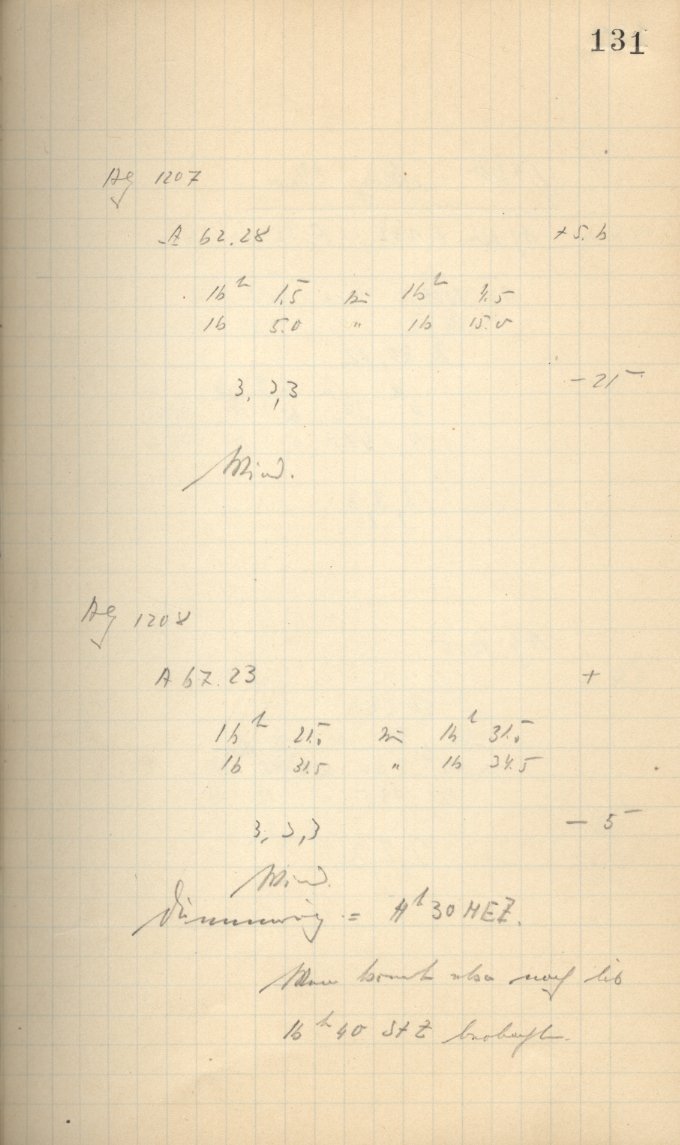 131
Ag 1207
A 62.28 +5.6
16h 1.5 bis 16h 4.5
16 5.0 " 16 15.0
3, 3, 3 -21
Wind.
Ag 1208
A 67.23 +
16h 21.5 bis 16h 31.5
16 31.5 " 16 34.5
3, 3, 3 - 5
Wind.
Dämmerung = 4h 30 MEZ.
Man kann also noch bis
16h 40 StZ beobachten.